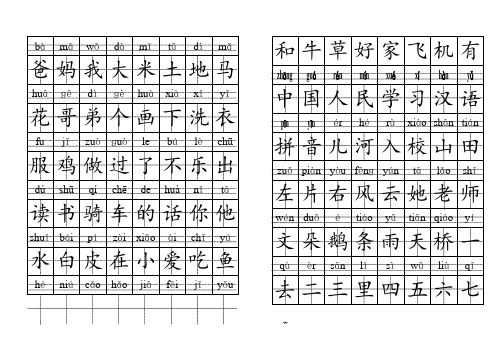 bà mā wǒ dà mǐ tǔ dì mǎ
爸 妈 我 大 米 土 地 马
huā gē dì gè huà xià xǐ yī
花 哥 弟 个 画 下 洗 衣
fu jī zuò guò le bù lè chū
服 鸡 做 过 了 不 乐 出
dú shū qí chē de huà nǐ tā
读 书 骑 车 的 话 你 他
shuǐ bái pí zài xiǎo ài chī yú
水 白 皮 在 小 爱 吃 鱼
hé niú cǎo hǎo jiā fēi jī yǒu
和 牛 草 好 家 飞 机 有
zhōng guó rén mín xué xí hàn yǔ
中 国 人 民 学 习 汉 语
pīn yīn ér hé rù xiào shān tián
拼 音 儿 河 入 校 山 田
zuǒ piàn yòu fēng yún tā lǎo shī
左 片 右 风 云 她 老 师
wén duǒ é tiáo yǔ tiān qiáo yí
文 朵 鹅 条 雨 天 桥 一
qù èr sān lǐ sì wǔ liù qī
去 二 三 里 四 五 六 七